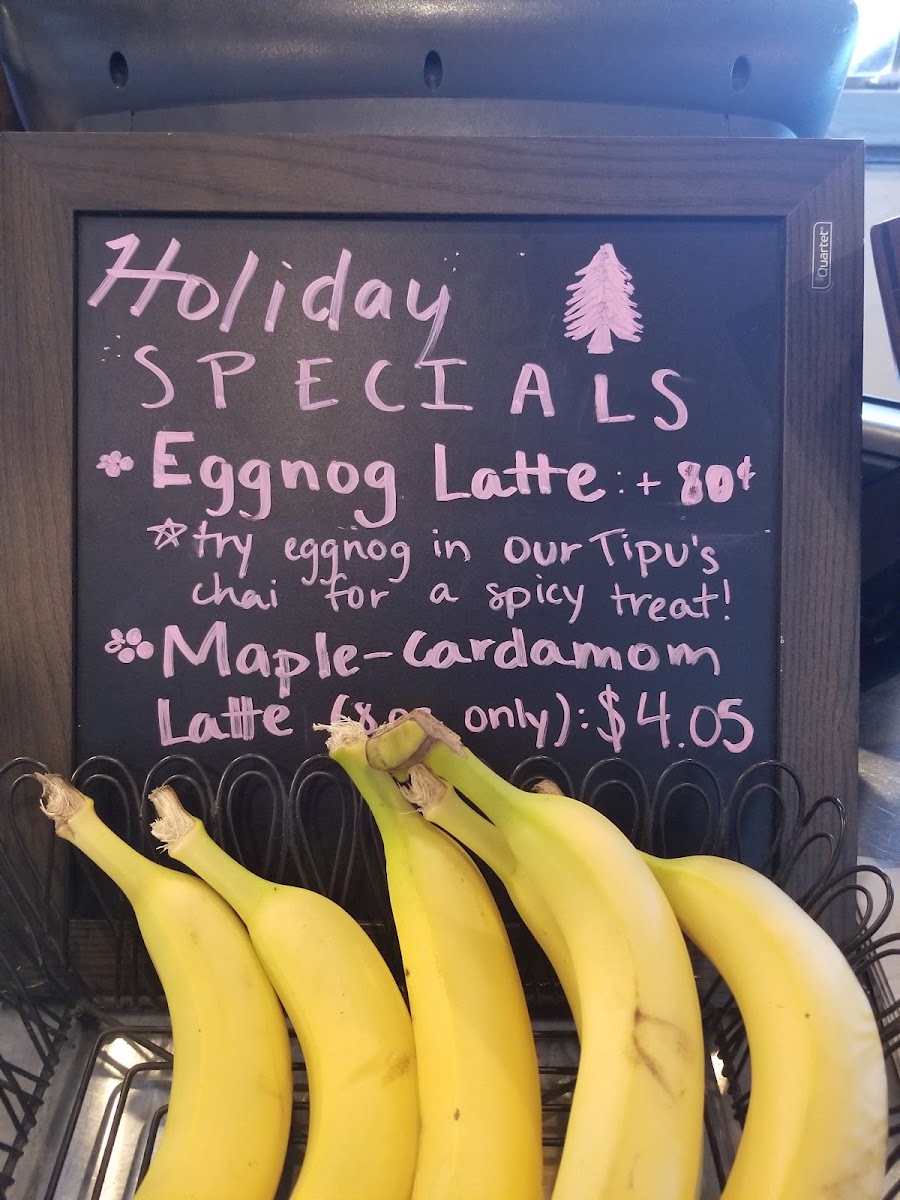 Quartet
Holiday
SPECIALS
Eggnog Latte: + 80¢
try eggnog in our Tipu's
chai for a spicy treat!
Maple-Cardamom
Latte (8oz only): $4.05